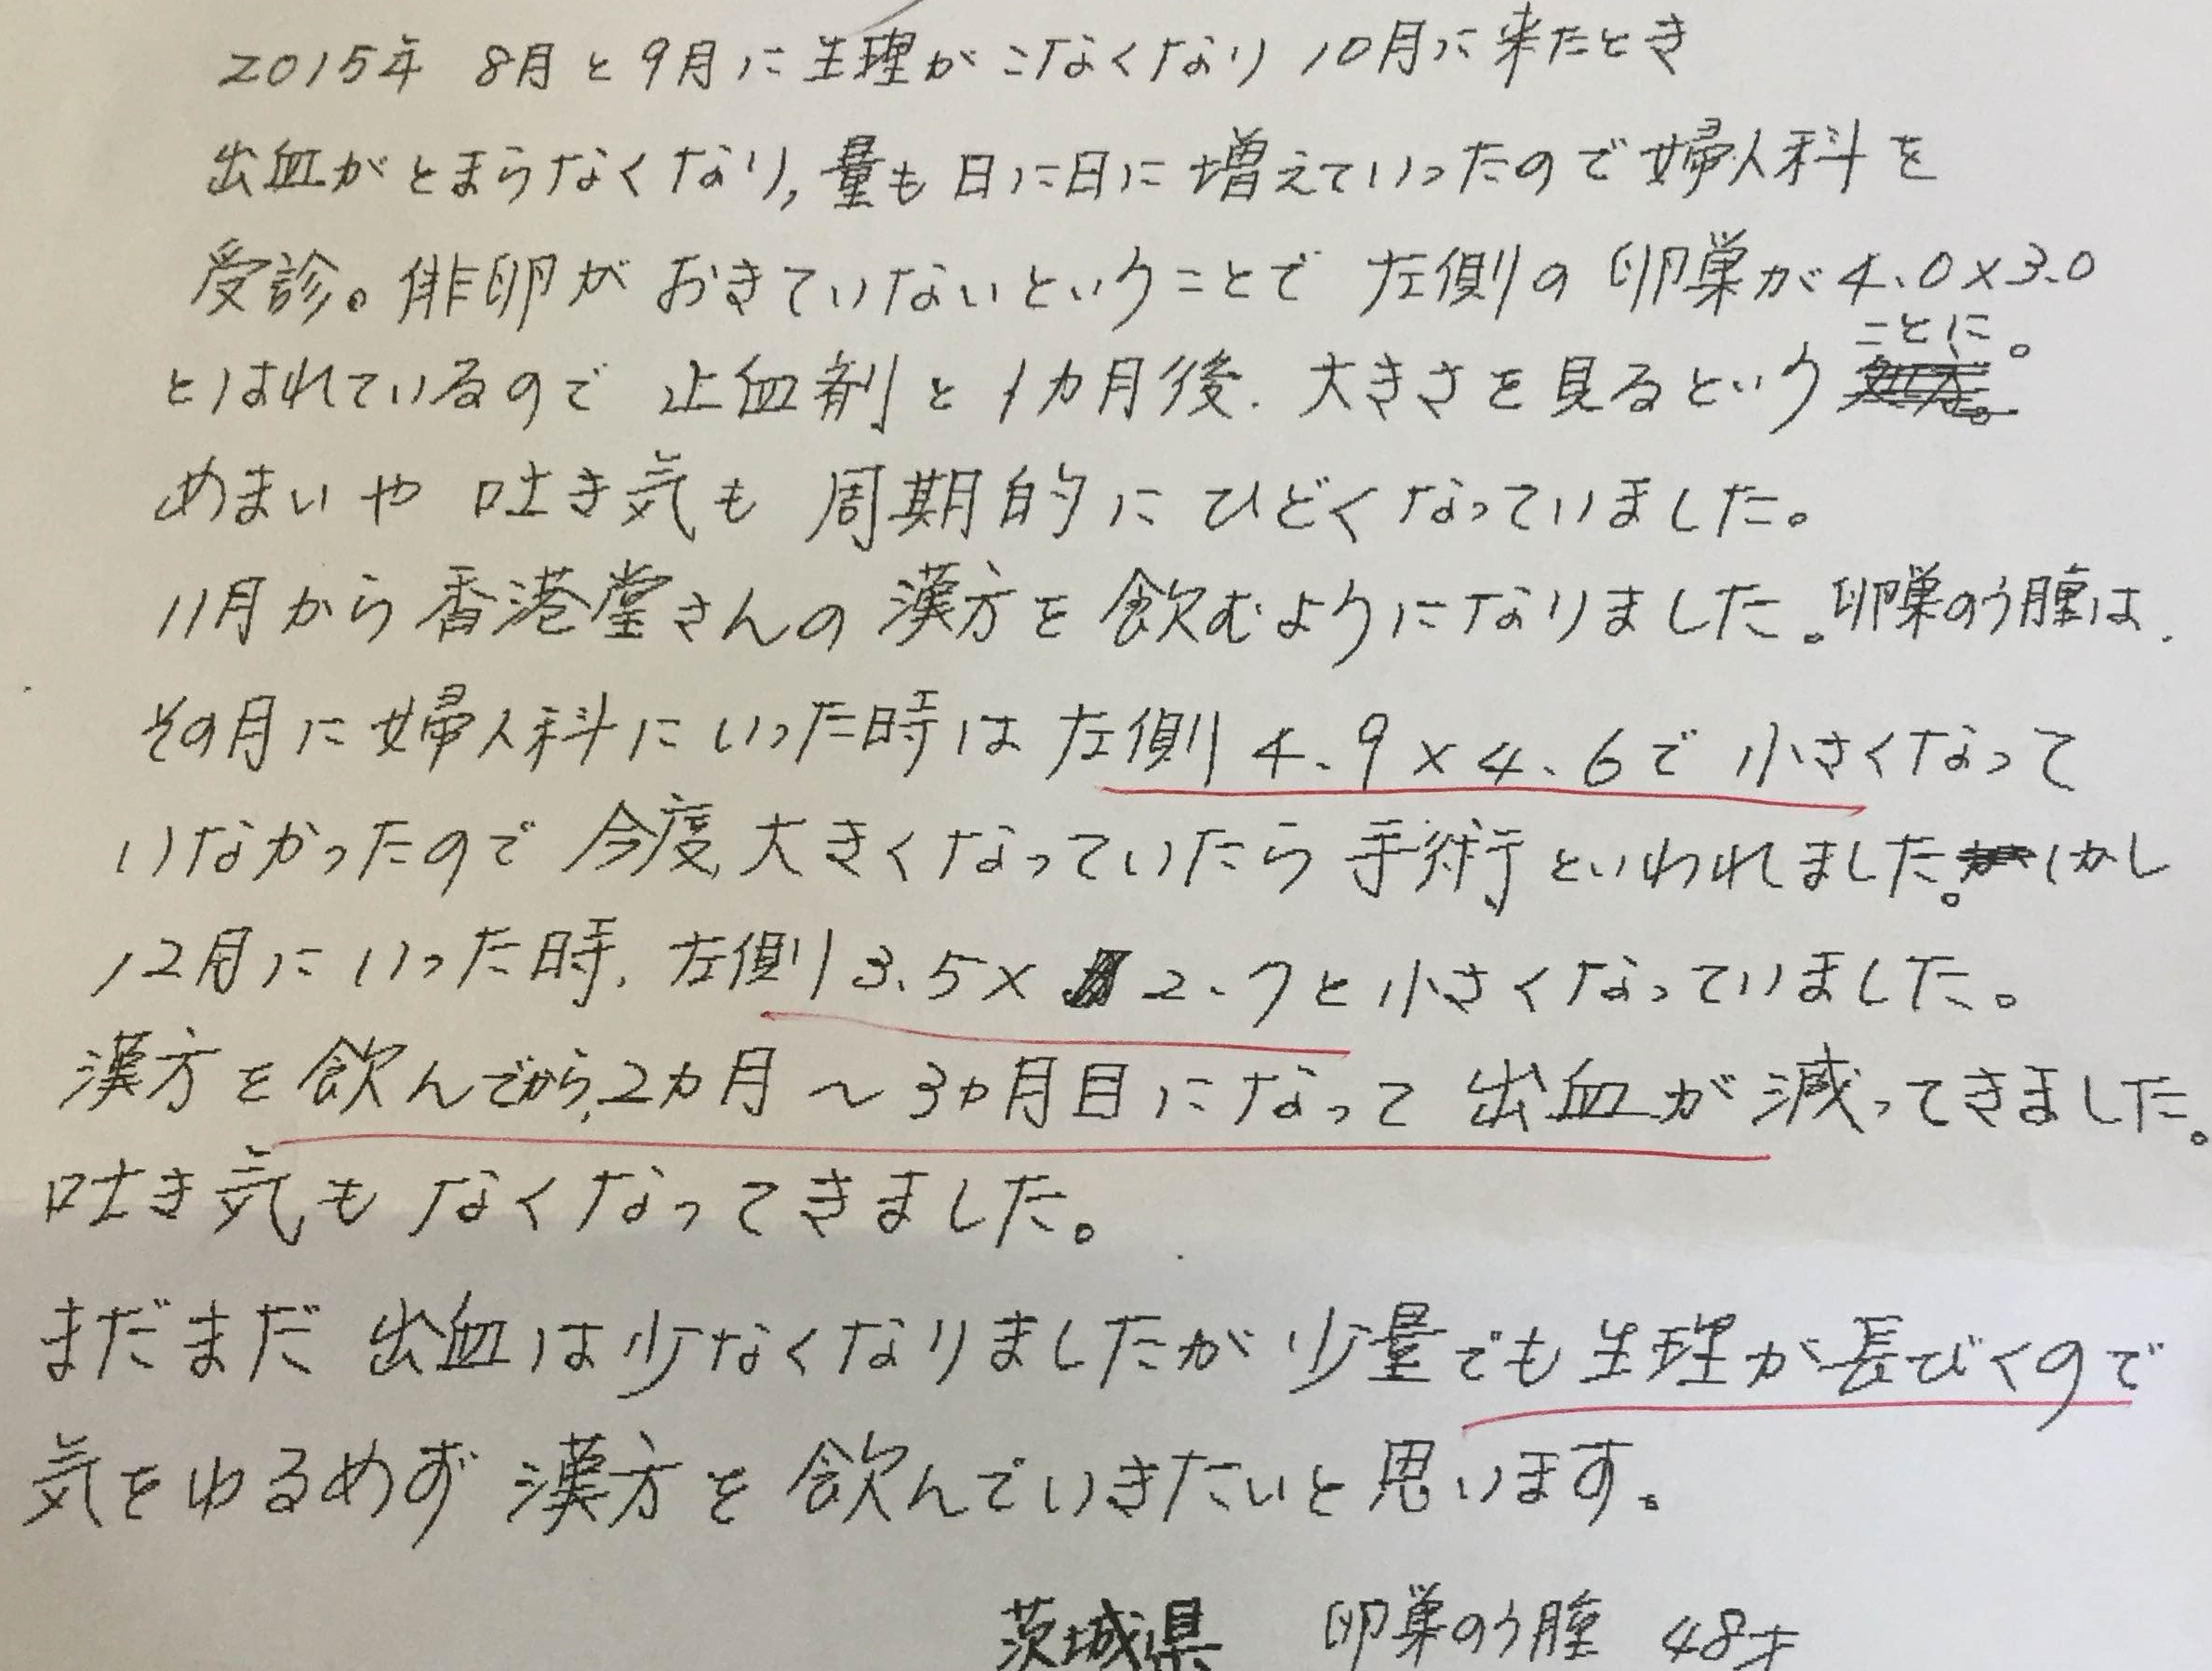 2015年 8月と9月に生理がこなくなり 10月に来たとき
出血がとまらなくなり,量も日に日に増えていったので婦人科を
受診。俳卵がおきていないということで 左側の卵巣が4.0×3.0
とはれているので 止血剤と1カ月後.大きさを見るという ことに。
めまいや 吐き気も 周期的にひどくなっていました。
11月から香港堂さんの漢方を飲むようになりました。卵巣のう腫は、
その月に婦人科にいった時は左側4.9×4.6で小さくなって
いなかったので今度、大きくなっていたら手術といわれました。しかし
12月にいった時、左側3.5×2.7と小さくなっていました。
漢方を飲んでから、2カ月〜3カ月目になって出血が減ってきました。
吐き気もなくなってきました。
まだまだ出血は少なくなりましたが少量でも生理が長びくので
気をゆるめず漢方を飲んでいきたいと思います。
茨城県 卵巣のう腫 48才